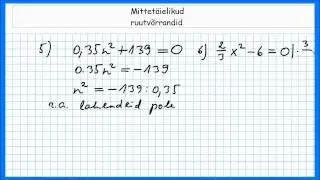 Mittetäielikud
ruutvõrrandid
5) 0,35n²+139=0
0.35n²=-139
n²=-139:0,35
r.a. lahendeid pole
6) 2/3 x²-6=0|·3